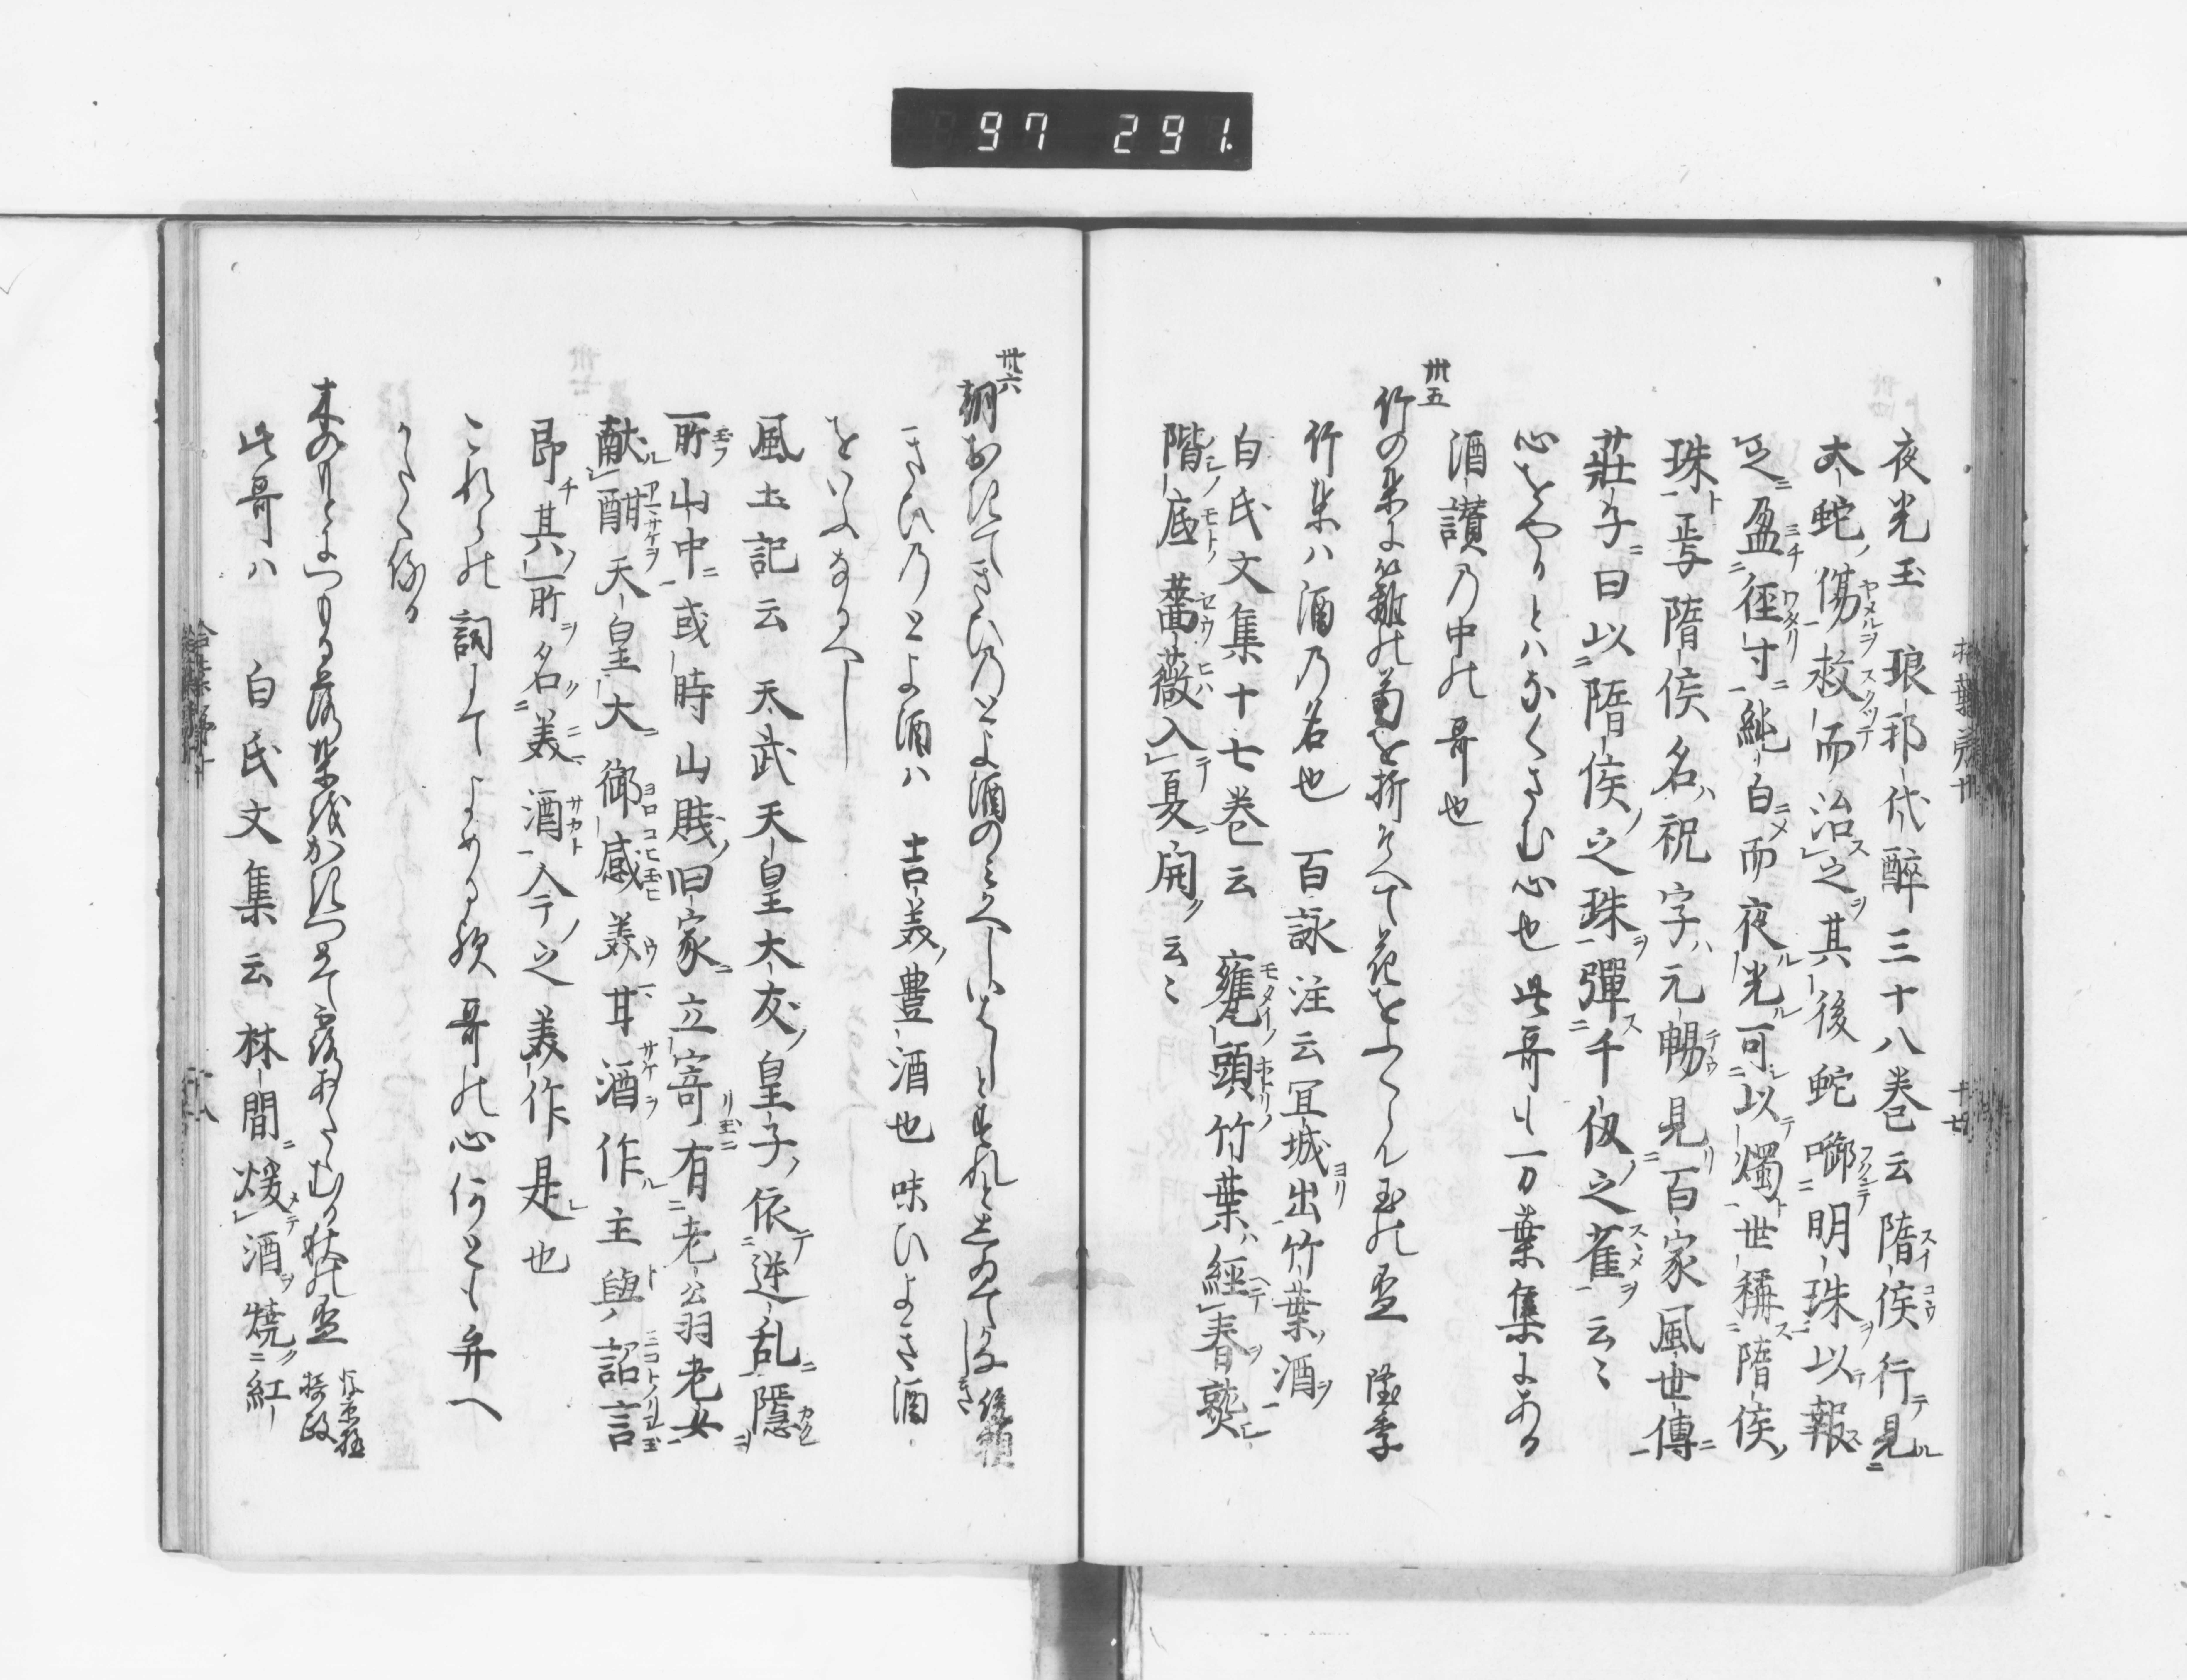 97 291.
夜光玉 琅邪代醉三十八巻云隋侯行見
大蛇傷救而治之其後蛇啣明珠以報
之盈径寸純白而夜光可以燭世稱隋侯
珠焉隋侯名祝字元暢見百家風世傳
荘子曰以隋侯之珠彈千仭之雀云々
心をやるとハなくさむ心也此哥も万葉集にある
酒讃乃中の哥也
卅五
竹の葉に籬の菊を折そへて花をふくらん玉の盃
竹葉ハ酒乃名也 百詠注云冝城出竹葉酒
白氏文集十七巻云 甕頭竹葉經春熟
階底薔薇入夏開云々
卅六
朝おきてきひのとよ酒の
俊頼
きひ乃とよ酒ハ 吉美豊酒也 味ひよき酒
をいふなるへし
風土記云 天武天皇大友皇子依逆乱隠
所山中或時山賤旧家立寄有老公羽老女
献酣天皇大御感美耳酒作主與詔言
即其所名美酒今之美作是也
これらの詞にてよめる歟哥の心何とも弁へ
かたく侍る
木のもとにつもる落葉をかきつめて露あたゝむる秋の盃
後京極
摂政
此哥ハ 白氏文集云 林間煖酒燒紅